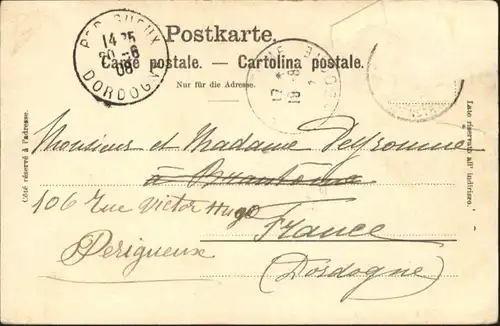 Postkarte.
Carte postale. — Cartolina postale.
Nur für die Adresse.
PERIGUEUX
14 25
20 -8
08
DORDOGNE
Côté réservé à l'adresse.
Lato riservato all' indirizzo.
Monsieur et Madame Peyronnie
à Brantôme
106 Rue Victor Hugo
France
Perigueux
(Dordogne)